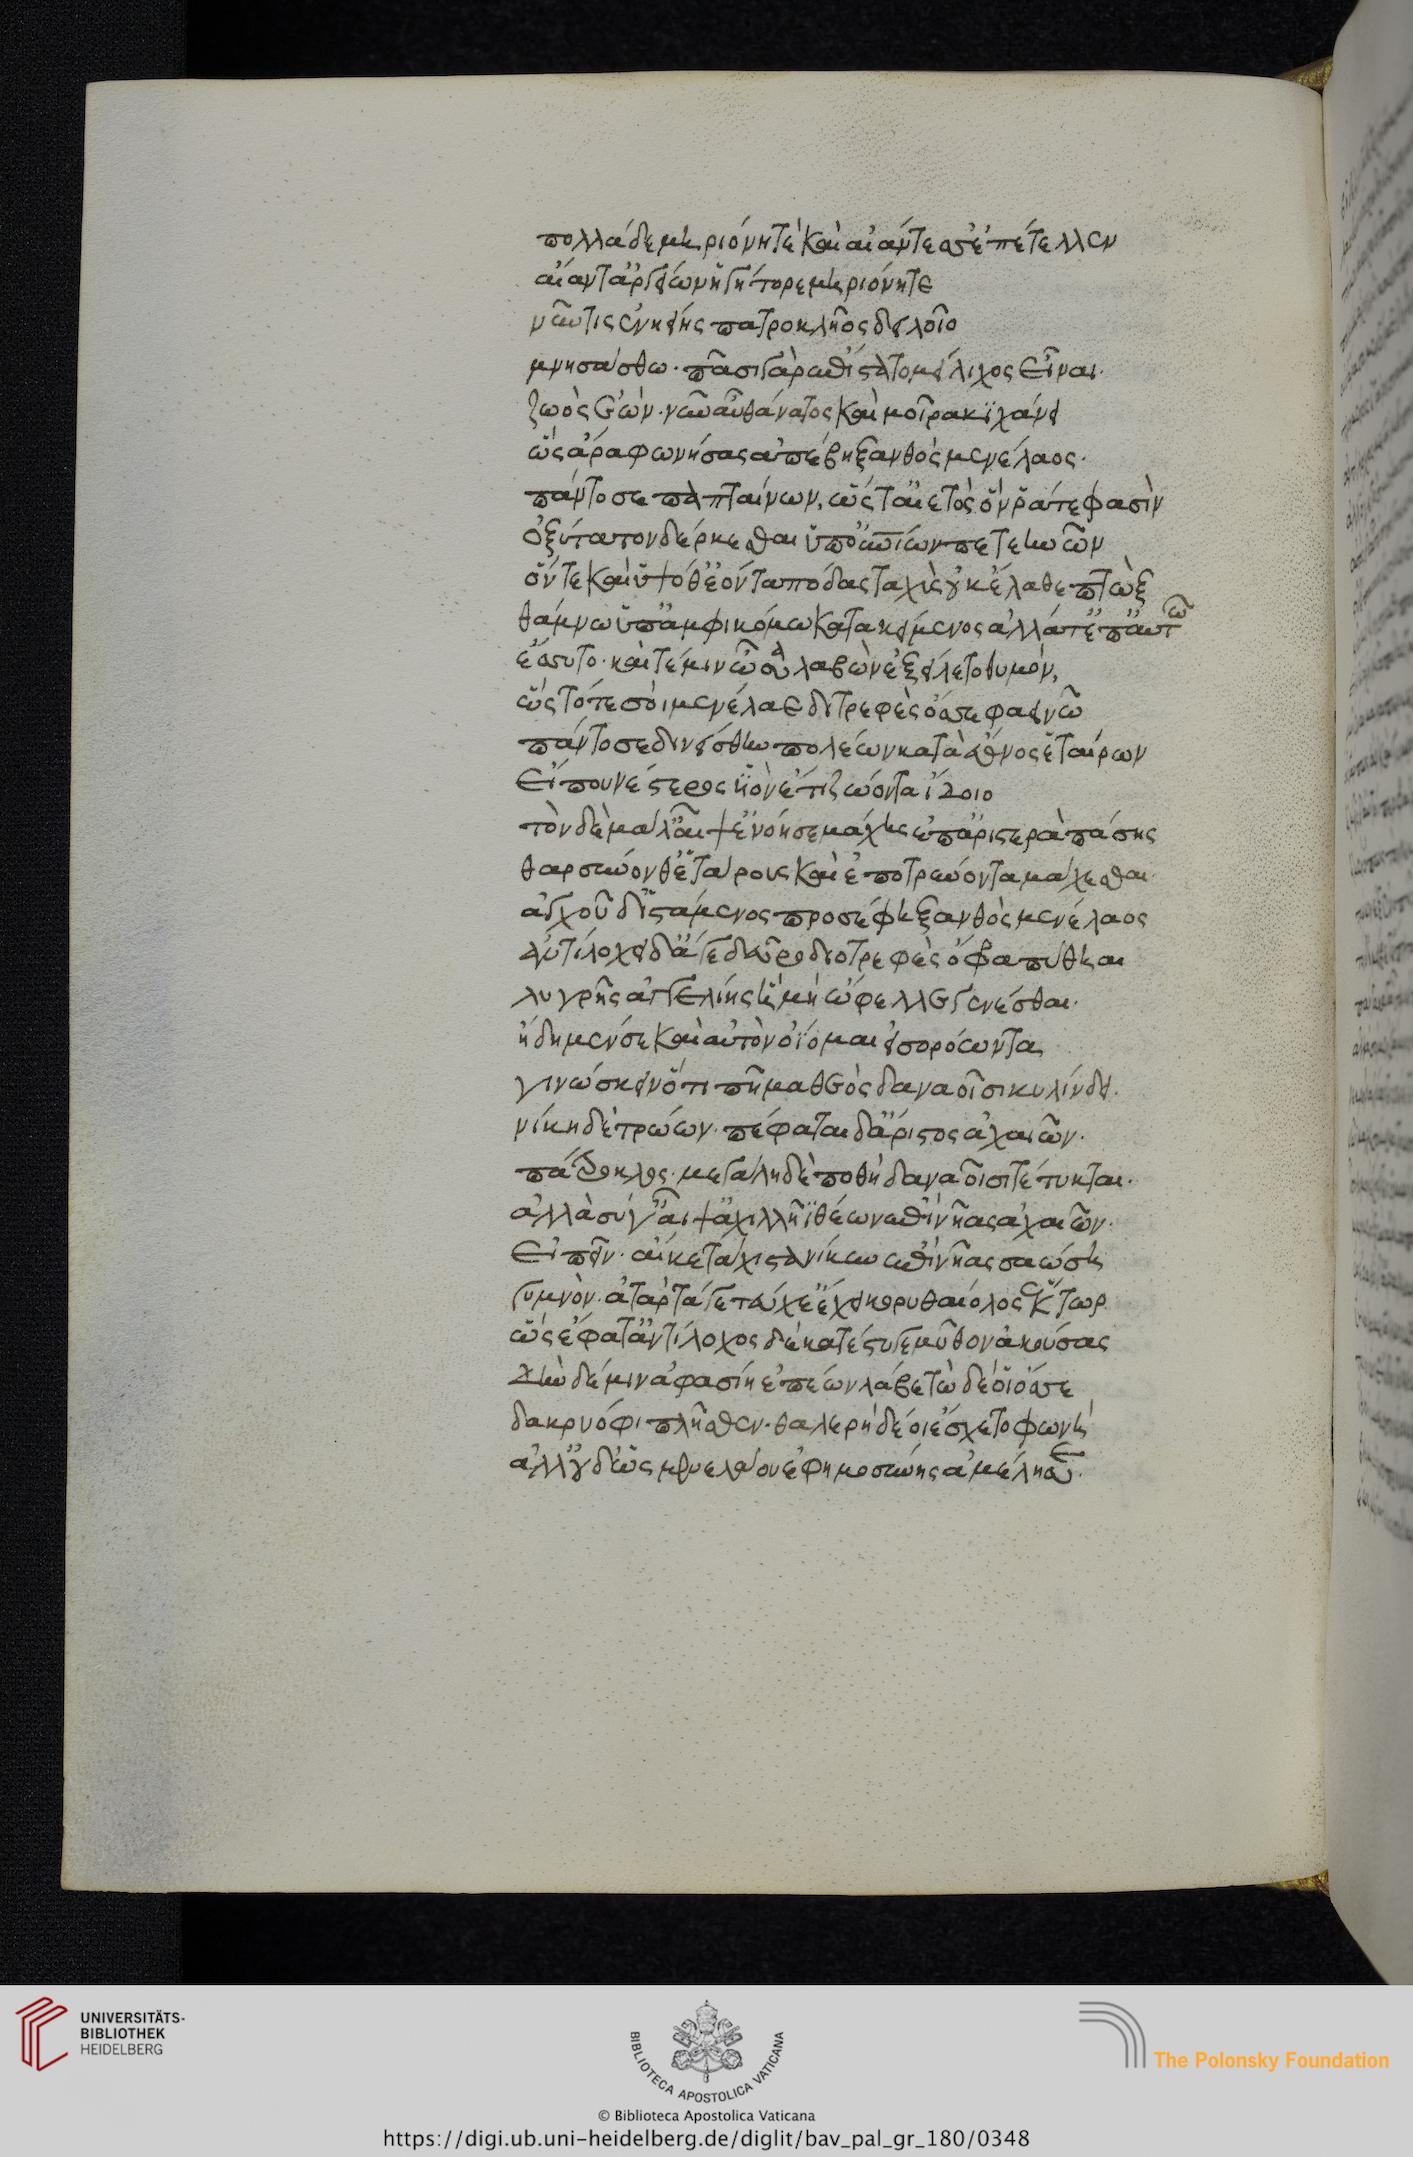 πολλὰ δὲ μηριόνῃ τὲ καὶ αἰάντεσσ' ἐπέτελλεν
αἴαντ' ἀργείων ἡγήτορε μηριόνη τε
νῦν τις ἐνηείης πατροκλῆος δειλοῖο
μνησάσθω· πᾶσι γὰρ ἐπίστατο μείλιχος εἶναι·
ζωὸς ἐών· νῦν αὖ θάνατος καὶ μοῖρα κιχάνει
ὣς ἄρα φωνήσας ἀπέβη ξανθὸς μενέλαος·
πάντοσε παπταίνων, ὥς τ' αἰετὸς ὅν ῥά τε φασὶν
ὀξύτατον δέρκεσθαι ὑπουρανίων πετεηνῶν
ὅν τε καὶ ὑψόθ' ἐόντα πόδας ταχὺς οὐκ ἔλαθε πτὼξ
θάμνω ὑπ' ἀμφικόμω κατακείμενος ἀλλά τ' ἐπ' αὐτῶ
ἔσσυτο· καί τέ μιν ὦκα λαβὼν ἐξείλετο θυμόν,
ὣς τότε σοὶ μενέλαε διοτρεφὲς ὄσσε φαεινῶ
πάντοσε δινείσθην πολέων κατὰ ἔθνος ἑταίρων
εἴ που νέστορος υἱὸν ἔτι ζώοντα ἴδοιο
τὸν δὲ μάλ' αἶψ' ἐνόησε μάχης ἐπ' ἀριστερὰ πάσης
θαρσύνονθ' ἑτάρους καὶ ἐποτρύνοντα μάχεσθαι·
ἀγχοῦ δ' ἱστάμενος προσέφη ξανθὸς μενέλαος
ἀντίλοχ' εἰ δ' ἄγε δεῦρο διοτρεφὲς ὄφρα πύθηαι
λυγρῆς ἀγγελίης ἣ μὴ ὤφελλε γενέσθαι·
ἤδη μὲν σὲ καὶ αὐτὸν ὀΐομαι εἰσορόωντα
γινώσκειν ὅτι πῆμα θεὸς δαναοῖσι κυλίνδει·
νίκη δὲ τρώων· πέφαται δ' ἄριστος ἀχαιῶν·
πάτροκλος· μεγάλη δὲ ποθὴ δαναοῖσι τέτυκται·
ἀλλὰ σύ γ' αἶψ' ἀχιλλῆϊ θέων ἐπὶ νῆας ἀχαιῶν·
εἰπεῖν· αἴ κε τάχιστα νέκυν ἐπὶ νῆα σαώση
γυμνόν· ἀτὰρ τά γε τεύχε' ἔχει κορυθαίολος ἕκτωρ
ὣς ἔφατ' ἀντίλοχος δὲ κατέστυγε μῦθον ἀκούσας
δὴν δέ μιν ἀφασίη ἐπέων λάβε τὼ δέ οἱ ὄσσε
δακρυόφι πλῆσθεν· θαλερὴ δέ οἱ ἔσχετο φωνή
ἀλλ' οὐδ' ὣς μενελάου ἐφημοσύνης ἀμέλησε·
UNIVERSITÄTS-
BIBLIOTHEK
HEIDELBERG
BIBLIOTECA APOSTOLICA VATICANA
The Polonsky Foundation
© Biblioteca Apostolica Vaticana
https://digi.ub.uni-heidelberg.de/diglit/bav_pal_gr_180/0348